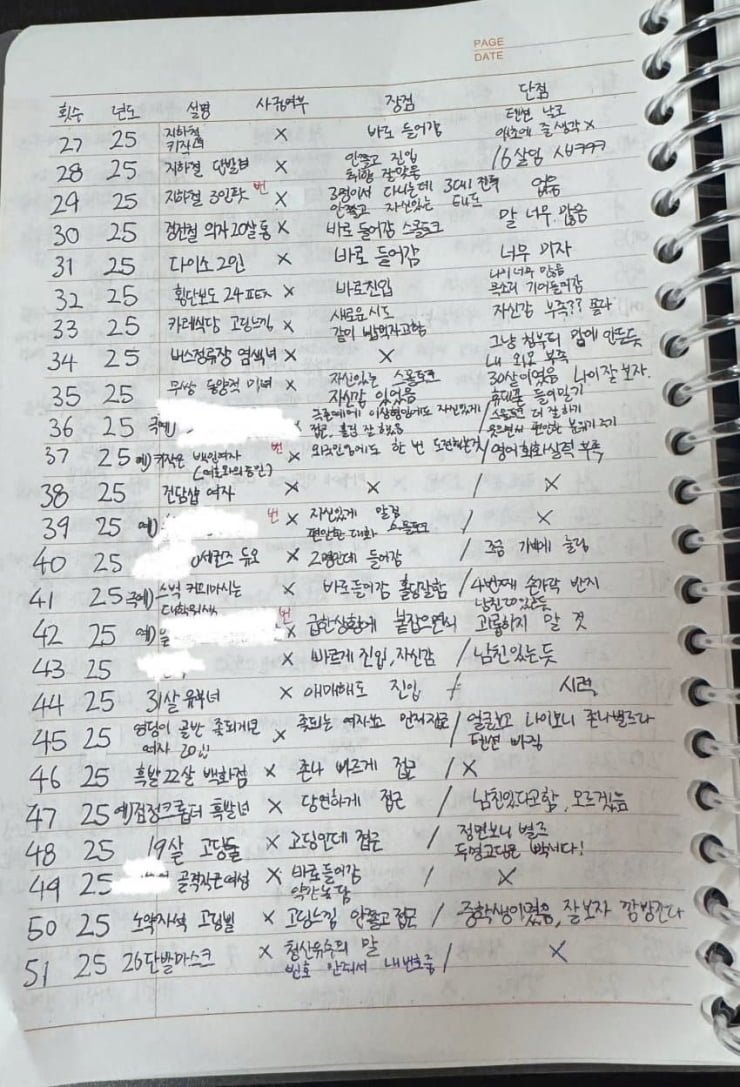 PAGE
DATE
횟수 년도 설명 사귐여부 장점 단점
27 25 지하철 키작녀 × 바로 들어감 텐션 낮고
28 25 지하철 단발녀 × 안쫄고 진입 취향 잘맞음 16살임 ㅅㅂㅋㅋㅋ
29 25 지하철 3인팟 번 × 3명이서 다니는데 3대1 전투 안쫄고 자신있는 태도 없음
30 25 경전철 의자 20살 통 × 바로 들어감 스몰토크 말 너무 많음
31 25 다이소 2인 × 바로 들어감 너무 키자
32 25 횡단보도 24 × 바로진입 나이 너무 많음 목소리 기어들어감
33 25 카레식당 고딩느낌 × 새로운시도 같이 밥먹자고함 자신감 부족?? 몰라
34 25 버스정류장 염색녀 × × 그냥 첨부터 맘에 안든듯 내 외모 부족
35 25 무쌍 동양적 미녀 × 자신있는 스몰토크 자신감 있었음 30살이였음 나이 잘 보자. 휴대폰 들이밀기
36 25 극예) × 극존예에 이상형임에도 자신있게 접근, 플러팅 잘했음 / 스몰토크 더 잘하기 웃으면서 편안한 분위기 주기
37 25 예) 키작은 백인여자 번 × 외국인임에도 한 번 도전해본것 / 영어회화실력 부족
38 25 전담샵 여자 × × / ×
39 25 예) 번 × 자신있게 말걸 편안한 대화 스몰토크 / ×
40 25 듀오 × 2명인데 들어감 / 조금 가백에 눌림
41 25 극예) 스벅 커피마시는 대학원생 × 바로들어감 플팅잘함 / 4번째 손가락 반지 남친있는듯
42 25 예) 번 × 급한상황에 붙잡으면서 / 괴롭히지 말 것
43 25 × 빠르게 진입, 자신감 / 남친있는듯
44 25 31살 유부녀 × 애매해도 진입 / 시력
45 25 엉덩이 골반 죽되게큰 여자 20 × 죽되는 여자보고 먼저접근 / 얼굴보고 나이보니 존나별로다 텐션 빠짐
46 25 흑발 22살 백화점 × 존나 빠르게 접근 / ×
47 25 예) 검정크롭티 흑발녀 × 당연하게 접근 / 남친있다고함, 모르겠음
48 25 19살 고딩들 × 고딩인데 접근 / 정면보니 별로 두얼고딩은 빡세다!
49 25 골격작은여성 × 바로들어감 약간농담 / ×
50 25 노약자석 고딩삘 × 고딩느낌 안쫄고접근 / 중학생이였음, 잘보자 깜방간다
51 25 26단발마스크 × 청산유수의 말 번호 안줘서 내번호줌 / ×